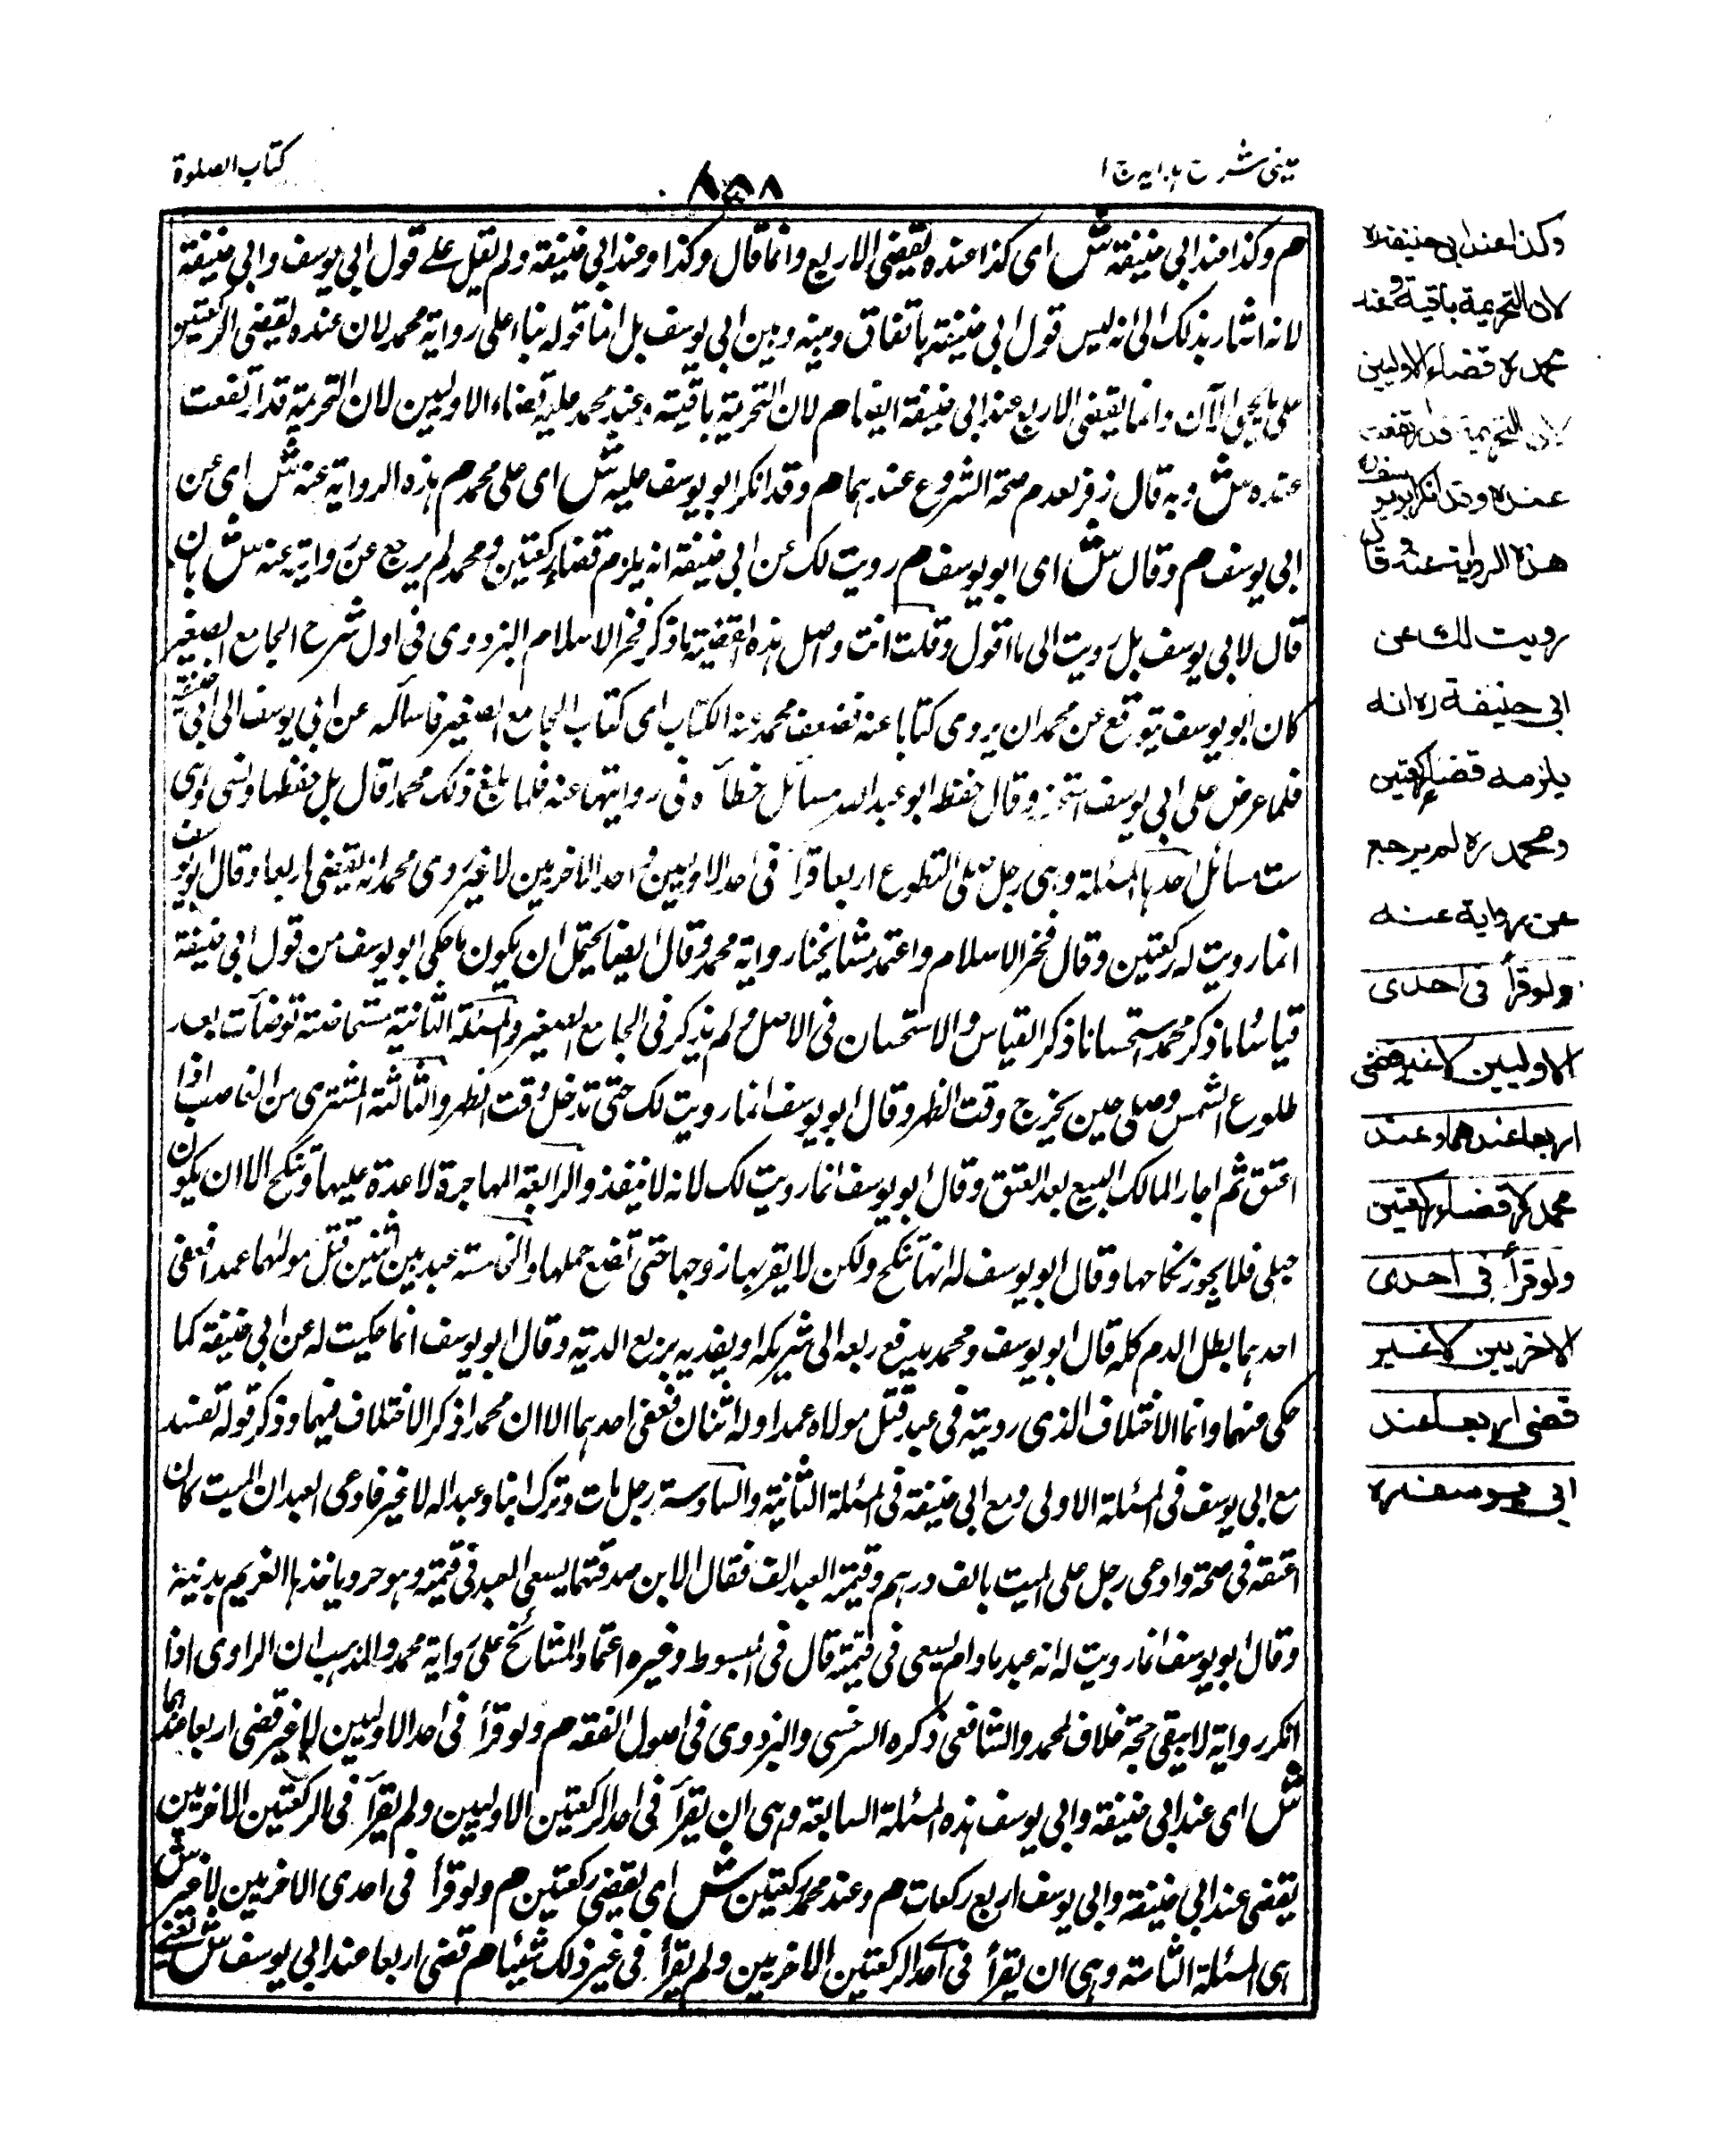 عينى شرح هدايه ج ١
٨٥٨
كتاب الصلوة
م وكذا عند ابى حنيفة ش اى كذا عنده يقضى الاربع وانما قال وكذا وعند ابى حنيفة ولم يقل على قول ابى يوسف وابى حنيفة
لانه اشار بذلك الى انه ليس قول ابى حنيفة باتفاق بينه وبين ابى يوسف بل انما قوله بناء على رواية محمد لان عنده يقضى الركعتين
على ما يجئ الآن وانما يقضى الاربع عند ابى حنيفة ايضا م لان التحريمة باقية وعند محمد عليه قضاء الاوليين لان التحريمة قد ارتفعت
عنده ش وبه قال زفر لعدم صحة الشروع عندهما م وقد انكر ابو يوسف عليه ش اى على محمد م هذه الرواية عنه ش اى عن
ابى يوسف م وقال ش اى ابو يوسف م رويت لك عن ابى حنيفة انه يلزم قضاء ركعتين ومحمد لم يرجع عن روايته عنه ش بان
قال لابى يوسف بل رويت الى ما اقول وقلت انت واصل هذه القضية ما ذكر فخر الاسلام البزدوى فى اول شرح الجامع الصغير
كان ابو يوسف يتوقع عن محمد ان يروى كتابا عنه فصنف محمد هذا الكتاب اى كتاب الجامع الصغير فاسأله عن ابى يوسف الى ابى حنيفة
فلما عرض على ابى يوسف استحسن وقال حفظ ابو عبد الله مسائل خطأه فى روايتها عنه فلما بلغ ذلك محمدا قال بل حفظها ونسى وهى
ست مسائل احدها المسئلة وهى رجل صلى التطوع اربعا قرأ فى احد الاوليين واحد الاخريين لا غير روى محمد انه يقضى اربعا وقال ابو يوسف
انما رويت له ركعتين وقال فخر الاسلام واعتمد مشايخنا رواية محمد وقال ايضا يحتمل ان يكون ما حكى ابو يوسف من قول ابى حنيفة
قياسا وما ذكر محمد استحسانا ذكر القياس والاستحسان فى الاصل ولم يذكر فى الجامع الصغير والمسئلة الثانية مستحاضة توضأت بعد
طلوع الشمس وصلى حين يخرج وقت الظهر وقال ابو يوسف انما رويت لك حتى تدخل وقت الظهر والثالثة المشترى من الغاصب اذا
اعتق ثم اجاز المالك البيع بعد العتق وقال ابو يوسف انما رويت لك لانه لا ينفذ والرابعة المهاجرة لا عدة عليها وتنكح الا ان يكون
حبلى فلا يجوز نكاحها وقال ابو يوسف له انها تنكح ولكن لا يقربها زوجها حتى تضع حملها والخامسة عبد بين اثنين قتل مولى لهما عمدا فعفى
احدهما بطل الدم كله قال ابو يوسف ومحمد يدفع ربعه الى شريكه او يفديه بربع الدية وقال ابو يوسف انما حكيت له عن ابى حنيفة كما
حكى عنهما وانما الاختلاف الذى رويته فى عبد قتل مولاه عمدا وله اثنان فعفى احدهما الا ان محمدا ذكر الاختلاف فيهما وذكر قوله نفسه
مع ابى يوسف فى المسئلة الاولى ومع ابى حنيفة فى المسئلة الثانية والسادسة رجل مات وترك ابنا وعبدا له لا غير فادعى العبد ان الميت كان
اعتقه فى صحة وادعى رجل على الميت بالف درهم وقيمة العبد الف فقال الابن صدقتما يسعى العبد فى قيمته وهو حر وياخذها الغريم بدينه
وقال ابو يوسف انما رويت له انه عبد ما دام يسعى فى قيمته قال فى المبسوط وغيره اعتماد المشائخ على رواية محمد والمذهب ان الراوى اذا
انكر رواية لا يبقى حجة خلاف لمحمد والشافعى ذكره السرخسى والبزدوى فى اصول الفقه م ولو قرأ فى احد الاوليين لا غير قضى اربعا عندهما
ش اى عند ابى حنيفة وابى يوسف هذه المسئلة السابعة وهى ان يقرأ فى احد الركعتين الاوليين ولم يقرأ فى الركعتين الاخريين
يقضى عند ابى حنيفة وابى يوسف اربع ركعات م وعند محمد ركعتين ش اى يقضى ركعتين م ولو قرأ فى احدى الاخريين لا غير ش
اى المسئلة الثامنة وهى ان يقرأ فى احد الركعتين الاخريين ولم يقرأ فى غير ذلك شيئا م قضى اربعا عند ابى يوسف ش يقضى
وكذا عند ابى حنيفة ره
لان التحريمة باقية وعند
محمد ره قضاء الاوليين
لان التحريمة قد ارتفعت
عنده وقد انكر ابو يوسف ره
هذه الرواية عنه وقال
رويت لك عن
ابى حنيفة ره انه
يلزمه قضاء ركعتين
ومحمد ره لم يرجع
عن رواية عنه
ولو قرأ فى احدى
الاوليين لا غير قضى
اربعا عندهما وعند
محمد ره قضاء ركعتين
ولو قرأ فى احدى
الاخريين لا غير
قضى اربعا عند
ابى يوسف ره